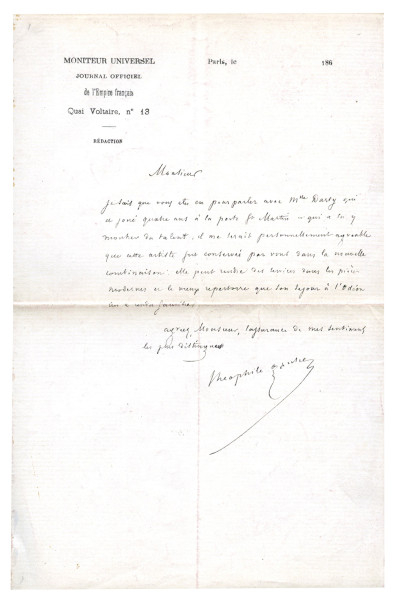 MONITEUR UNIVERSEL
JOURNAL OFFICIEL
de l'Empire français
Quai Voltaire, n° 13
RÉDACTION
Paris, le 186
Monsieur
je sais que vous êtes en pourparler avec Mlle Darty qui
a joué quatre ans à la porte St Martin et qui a
du talent, il me serait personnellement agréable
que cette artiste fut conservée par vous dans la nouvelle
combinaison; elle peut rendre des services dans les pièces
modernes et le vieux repertoire que son sejour à l'Odéon
lui a rendu familier
agréez, Monsieur, l'assurance de mes sentiments
les plus distingués
Théophile Gautier